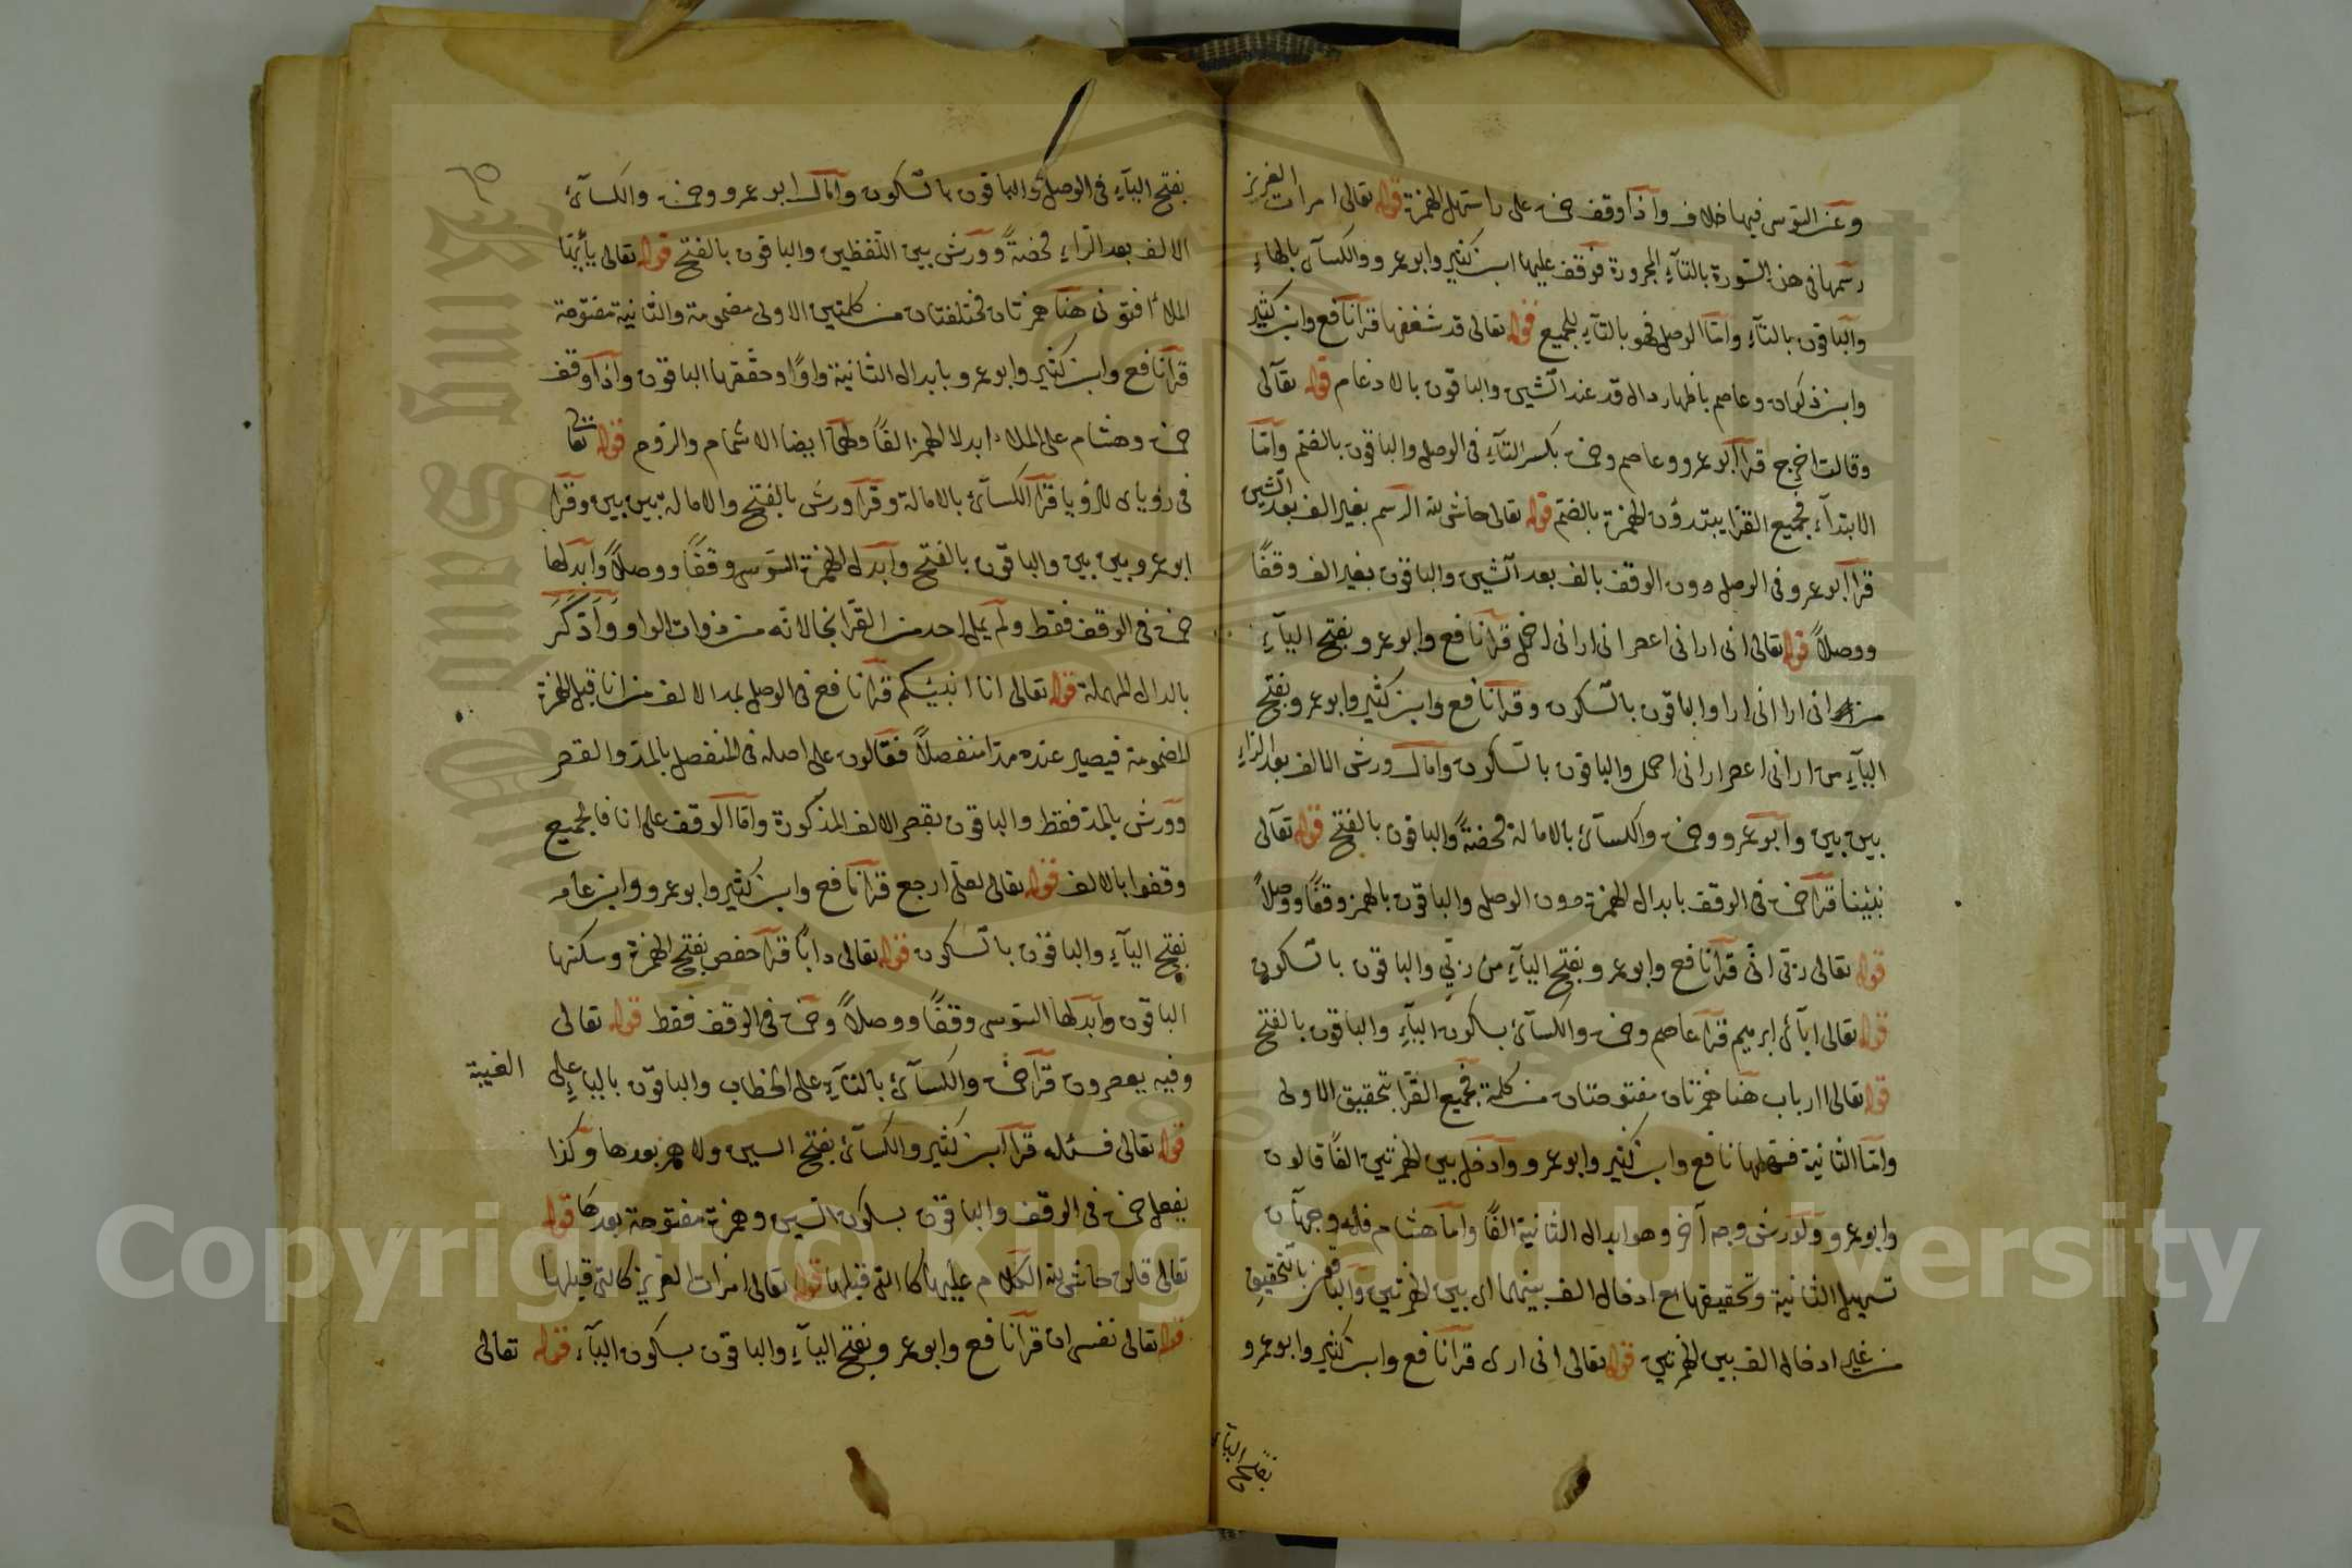 وعن السوسي فيها خلاف واذا وقف حمزة على راسهل الهمزة قوله تعالى امرات العزيز
رسمها في هذه السورة بالتاء المجرورة فوقف عليها ابن كثير وابو عمرو والكسائي بالهاء
والباقون بالتاء واما الوصل فهو بالتاء للجميع قوله تعالى قد شغفها قرا نافع وابن كثير
وابن ذكوان وعاصم باظهار دال قد عند الشين والباقون بالادغام قوله تعالى
وقالت اخرج قرا ابو عمرو وعاصم وحمزة بكسر التاء في الوصل والباقون بالضم واما
الابتداء فجميع القرا يبتدؤن الهمزة بالضم قوله تعالى حاش لله الرسم بغير الف بعد الشين
قرا ابو عمرو في الوصل دون الوقف بالف بعد الشين والباقون بغير الف وقفًا
ووصلاً قوله تعالى اني اراني اعصر اني اراني احمل قرا نافع وابو عمرو بفتح الياء
من اني ارا اني ارا والباقون بالسكون وقرا نافع وابن كثير وابو عمرو بفتح
الياء من اراني اعصر اراني احمل والباقون بالسكون وامال ورش الالف بعد الراء
بين بين وابو عمرو وحمزة والكسائي بالامالة محضةً والباقون بالفتح قوله تعالى
نبئنا قرا حمزة في الوقف بابدال الهمزة دون الوصل والباقون بالهمز وقفًا ووصلاً
قوله تعالى ربي اني قرا نافع وابو عمرو بفتح الياء من ربي والباقون بالسكون
قوله تعالى ابائي ابرهيم قرا عاصم وحمزة والكسائي بسكون الياء والباقون بالفتح
قوله تعالى اارباب هنا همزتان مفتوحتان من كلمة فجميع القرا بتحقيق الاولى
واما الثانية فسهلها نافع وابن كثير وابو عمرو وادخل بين الهمزتين الفًا قالون
وابو عمرو ولورش وجه آخر وهو ابدال الثانية الفًا واما هشام فله وجهان
تسهيل الثانية وتحقيقها مع ادخال الف بينهما اي بين الهمزتين والباقون بالتحقيق
من غير ادخال الف بين الهمزتين قوله تعالى اني ارى قرا نافع وابن كثير وابو عمرو
بفتح الياء
بفتح الياء في الوصل والباقون بالسكون وامال ابو عمرو وحمزة والكسائي
الالف بعد الراء محضةً وورش بين اللفظين والباقون بالفتح قوله تعالى يأيها
الملأ افتوني هنا همزتان مختلفتان من كلمتين الاولى مضمومة والثانية مفتوحة
قرا نافع وابن كثير وابو عمرو بابدال الثانية واوًا وحققها الباقون واذا وقف
حمزة وهشام على الملاء ابدلا الهمز الفًا ولهما ايضا الاشمام والروم قوله تعالى
في رؤياى للرؤيا قرا الكسائي بالامالة وقرا ورش بالفتح والامالة بين بين وقرا
ابو عمرو بين بين والباقون بالفتح وابدل الهمزة السوسي وقفًا ووصلاً وابدلها
حمزة في الوقف فقط ولم يمل احد من القرا نجا لانه من ذوات الواو وَادَّكَرَ
بالدال المهملة قوله تعالى انا انبئكم قرا نافع في الوصل بمد الالف من انا قبل الهمزة
المضمومة فيصير عنده مدا منفصلاً فقالون على اصله في المنفصل بالمد والقصر
وورش بالمد فقط والباقون بقصر الالف المذكورة واما الوقف على انا فالجميع
وقفوا بالالف قوله تعالى لعلي ارجع قرا نافع وابن كثير وابو عمرو وابن عامر
بفتح الياء والباقون بالسكون قوله تعالى دابًا قرا حفص بفتح الهمزة وسكنها
الباقون وابدلها السوسي وقفًا ووصلاً وحمزة في الوقف فقط قوله تعالى
وفيه يعصرون قرا حمزة والكسائي بالتاء على الخطاب والباقون بالياء على الغيبة
قوله تعالى فسئله قرا ابن كثير والكسائي بفتح السين ولا همز بعدها وكذا
يفعل حمزة في الوقف والباقون بسكون السين وهمزة مفتوحة بعدها قوله
تعالى قلن حاش لله الكلام عليها كالتي قبلها قوله تعالى امرات العزيز كالتي قبلها
قوله تعالى نفسي ان قرا نافع وابو عمرو بفتح الياء والباقون بسكون الياء قوله تعالى
Copyright © King Saud University